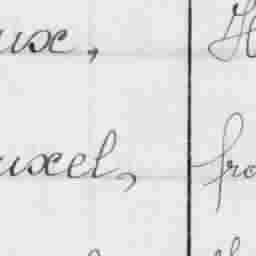 ux, H
uxel, fra